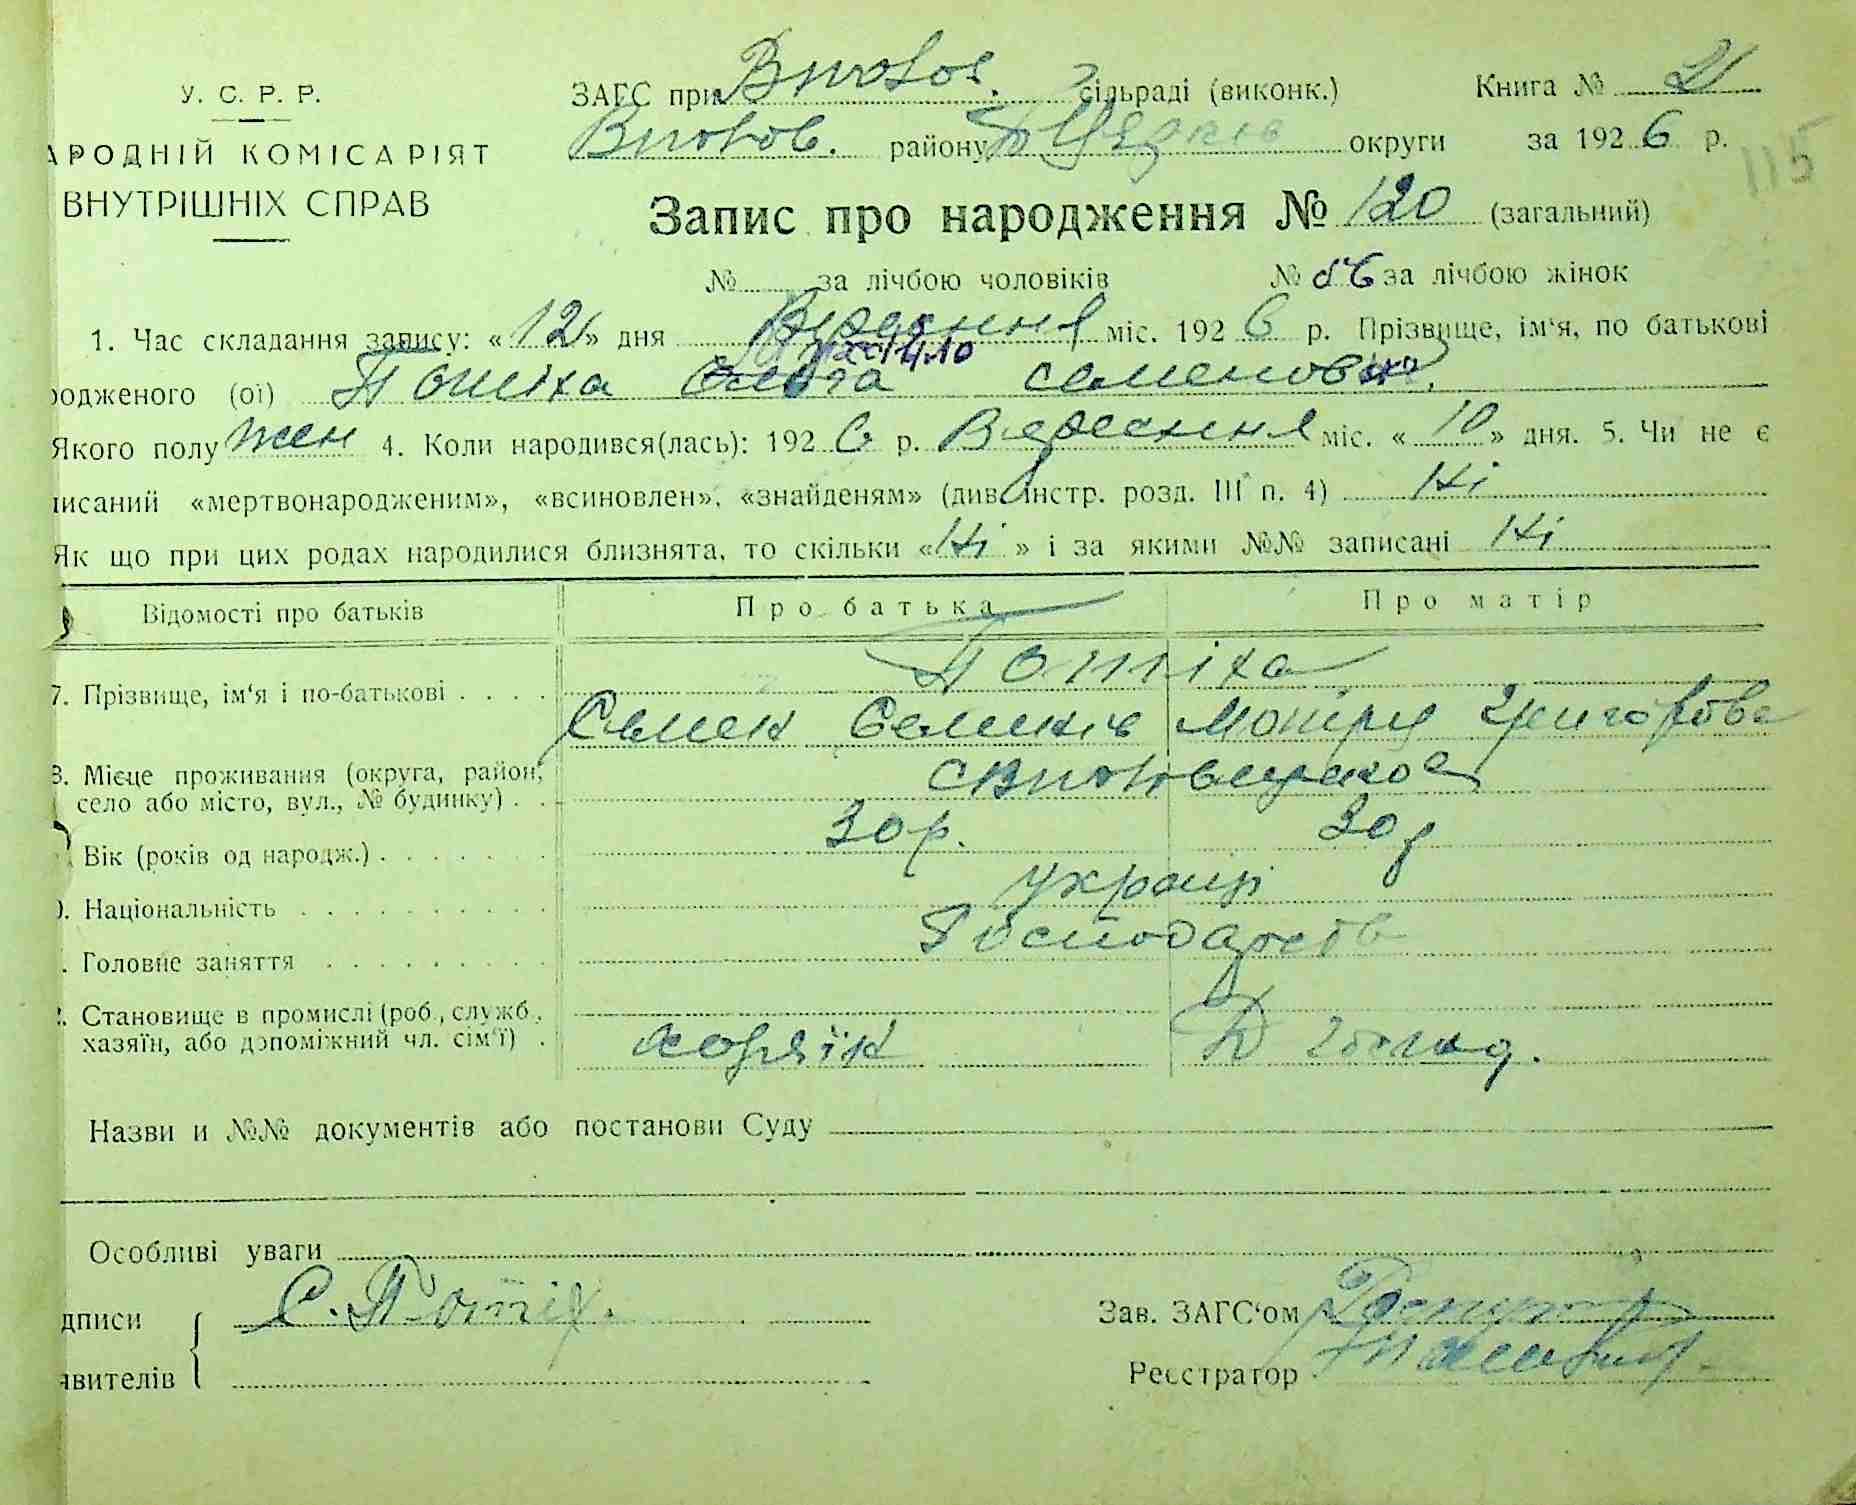 У. С. Р. Р.
АРОДНІЙ КОМІСАРІЯТ
ВНУТРІШНІХ СПРАВ
ЗАГС при сільраді (виконк.) Книга № 21
району округи за 1926 р.
115
Запис про народження № 120 (загальний)
№ за лічбою чоловіків № за лічбою жінок
1. Час складання запису: «12» дня Вересння міс. 1926 р. Прізвище, ім'я, по батькові
одженого (ої) Потіха Ольга семеновна
Якого полу жен 4. Коли народився(лась): 1926 р. Вересння міс. «10» дня. 5. Чи не є
исаний «мертвонародженим», «всиновлен», «знайденям» (див інстр. розд. III п. 4) Ні
Як що при цих родах народилися близнята, то скільки «Ні» і за якими №№ записані Ні
Відомості про батьків Про батька Про матір
7. Прізвище, ім'я і по-батькові Потіха
Семен Мотря Григоровна
8. Місце проживання (округа, район, село або місто, вул., № будинку)
Вік (років од народж.) 30 р. 30 р
Національність украці
Головне заняття Господарств
Становище в промислі (роб., служб., хазяїн, або допоміжний чл. сім'ї) хозяїн Д господ.
Назви и №№ документів або постанови Суду
Особливі уваги
дписи С. Потіх. Зав. ЗАГС'ом
явителів Реєстратор